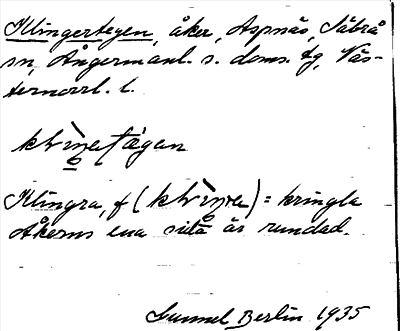 Klingertegen, åker, Aspnäs, Säbrå
sn, Ångermanl. s. doms. fg, Väs-
ternorrl. l.
Klingra, f = kringla
Åkerns ena sida är rundad.
Gunnel Berlin 1935